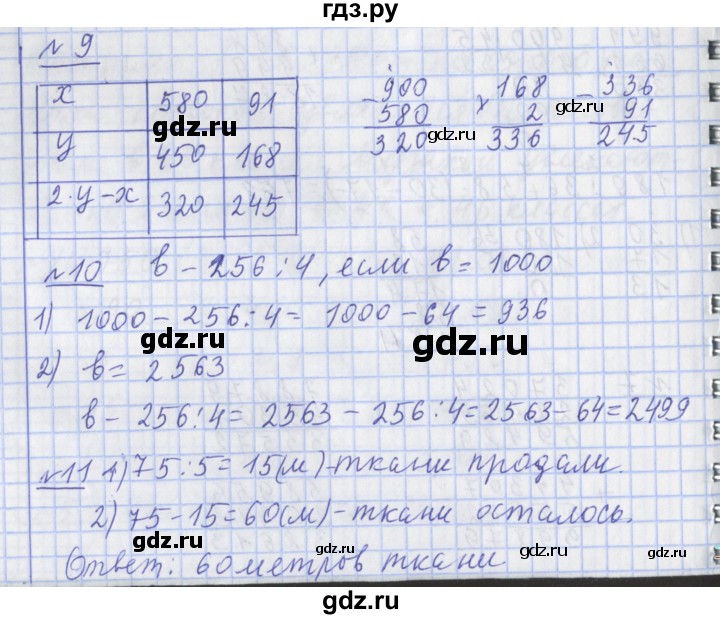 гдз.ру
№ 9
x 580 91
y 450 168
2·y-x 320 245
- 900
580
320
x 168
2
336
- 336
91
245
gdz.ru
gdz.ru
gdz.ru
№10 b - 256 : 4, если b = 1000
1) 1000 - 256 : 4 = 1000 - 64 = 936
gdz.ru
gdz.ru
2) b = 2563
b - 256 : 4 = 2563 - 256 : 4 = 2563 - 64 = 2499
№11 1) 75 : 5 = 15 (м) - ткани продали.
2) 75 - 15 = 60 (м) - ткани осталось.
gdz.ru
gdz.ru
gdz.ru
gdz.ru
Ответ: 60 метров ткани
gdz.ru